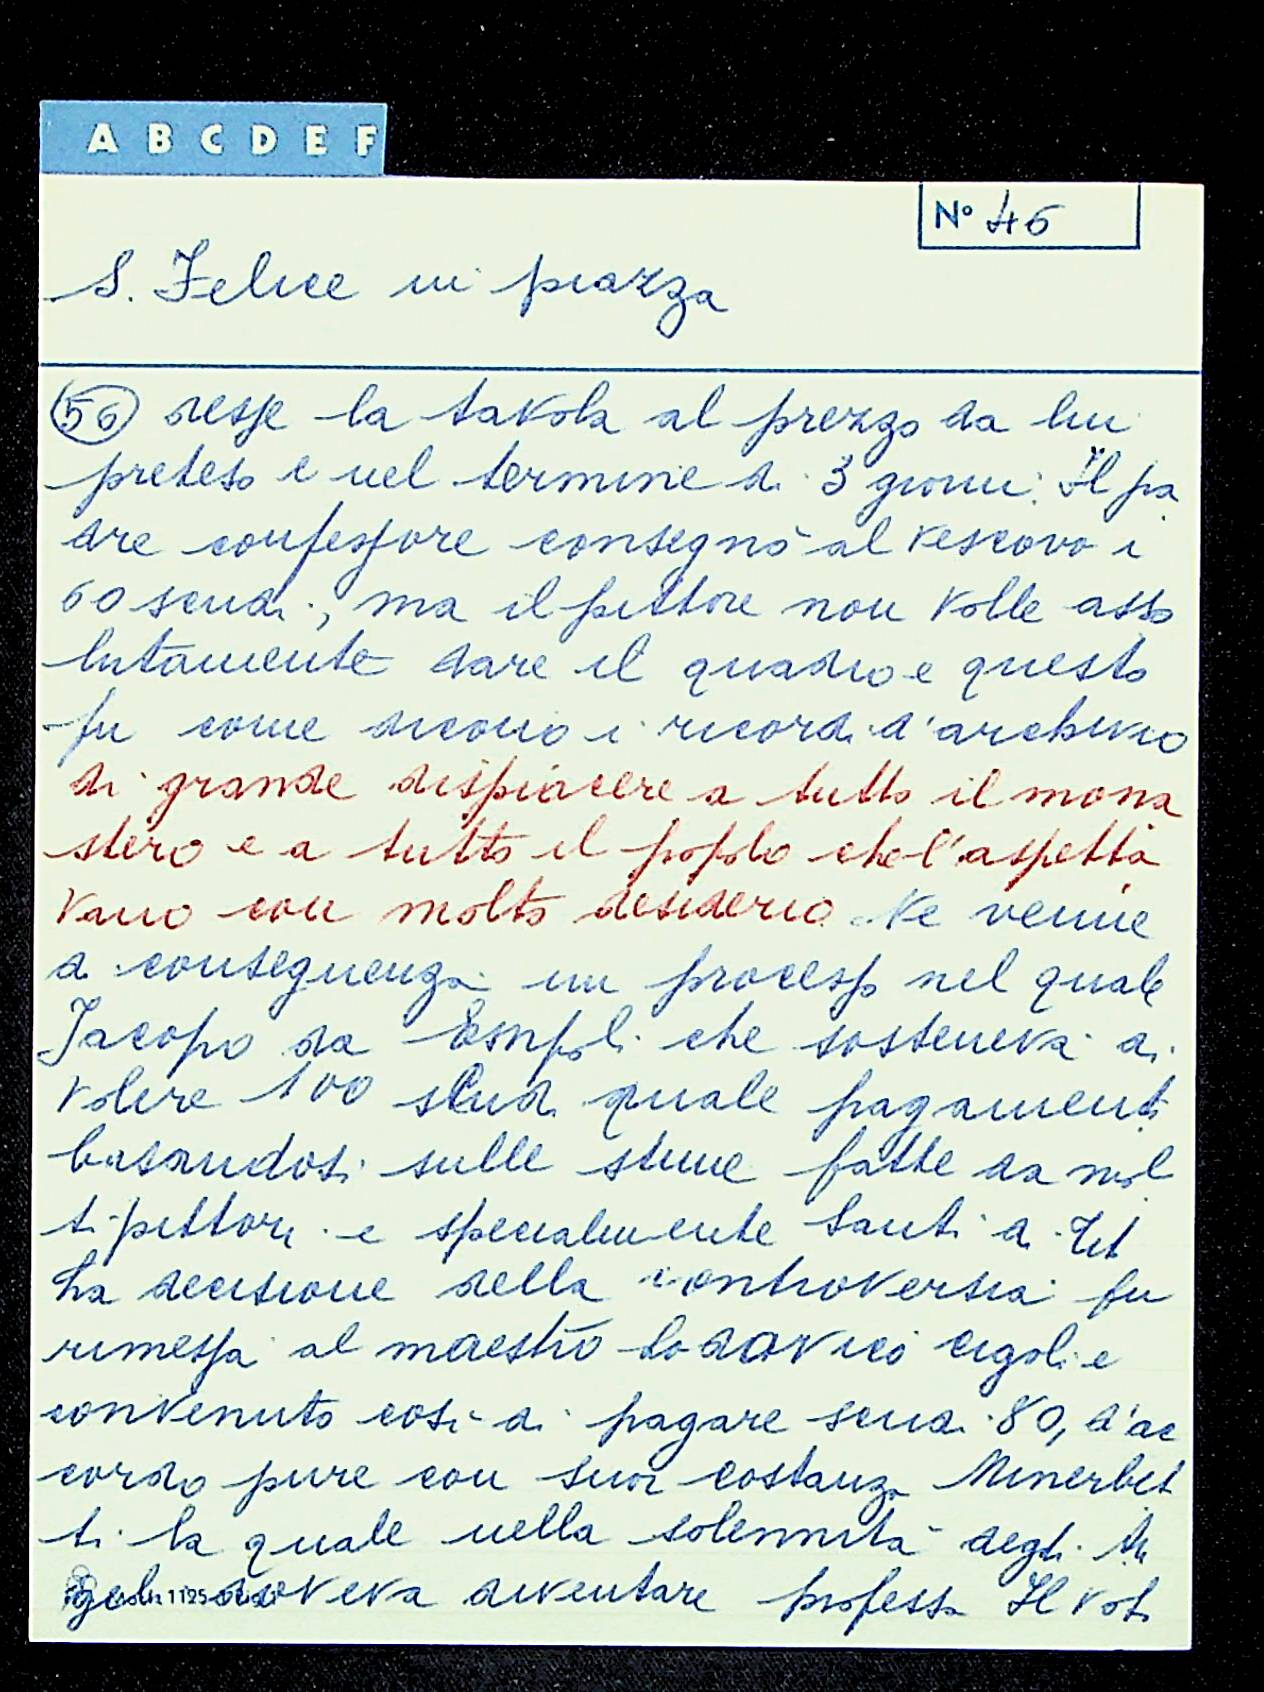 A B C D E F
N° 46
S. Felice in piazza
56 desse la tavola al prezzo da lui
preteso e nel termine di 3 giorni. Il pa
dre confessore consegnò al vescovo i
60 scudi, ma il pittore non volle asso
lutamente dare il quadro e questo
fu come dicono i ricordi d'archivio
di grande dispiacere a tutto il mona
stero e a tutto il popolo che l'aspetta
vano con molto desiderio. Ne venne
di conseguenza un processo nel quale
Jacopo da Empoli che sosteneva di
volere 100 scudi quale pagamento
basandosi sulle stime fatte da mol
ti pittori e specialmente Santi di Tit
La decisione della controversia fu
rimessa al maestro Lodovico Cigoli e
convenuto così di pagare scudi 80, d'ac
cordo pure con suor Costanza Minerbet
ti la quale nella solennità degli An
geli doveva diventare professa Il vot